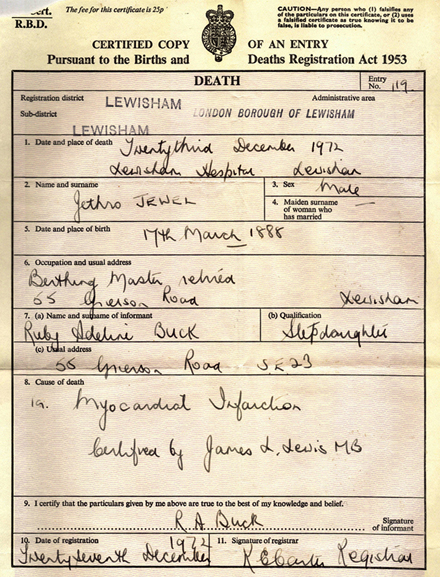 Cert.
R.B.D.
The fee for this certificate is 25p
CAUTION—Any person who (1) falsifies any of the particulars on this certificate, or (2) uses a falsified certificate as true knowing it to be false, is liable to prosecution.
CERTIFIED COPY OF AN ENTRY
Pursuant to the Births and Deaths Registration Act 1953
DEATH
Entry No. 119
Registration district LEWISHAM Administrative area
Sub-district LEWISHAM LONDON BOROUGH OF LEWISHAM
1. Date and place of death Twenty third December 1972
Lewisham Hospital Lewisham
2. Name and surname Jethro JEWEL
3. Sex Male
4. Maiden surname of woman who has married —
5. Date and place of birth 17th March 1888
6. Occupation and usual address
Berthing Master retired
55 Grierson Road Lewisham
7. (a) Name and surname of informant
Ruby Adeline BUCK
(b) Qualification
Stepdaughter
(c) Usual address
55 Grierson Road S.E 23
8. Cause of death
1a. Myocardial Infarction
Certified by James L. Lewis MB
9. I certify that the particulars given by me above are true to the best of my knowledge and belief.
R A Buck Signature of informant
10. Date of registration 1972
Twenty seventh December
11. Signature of registrar
Registrar